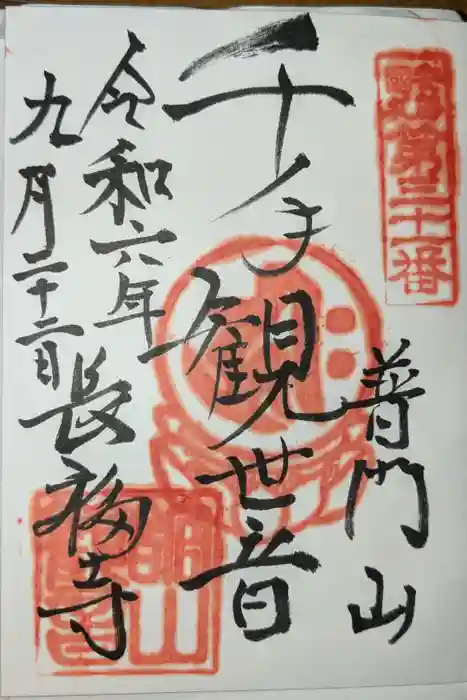 第三十一番
普門山
千手観世音
令和六年
九月二十二日
長福寺